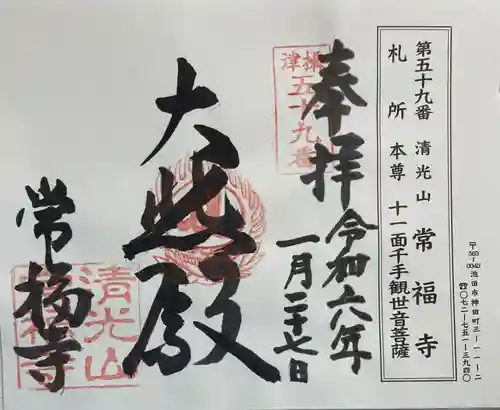 第五十九番 清光山 常福寺
札所 本尊 十一面千手観世音菩薩
〒563-0043 池田市神田町三-一一-二
☎〇七二-七五一-三九四〇
奉拝 令和六八年
一月二十七日
摂津
五十九番
大悲殿
常福寺
清光山
常福寺